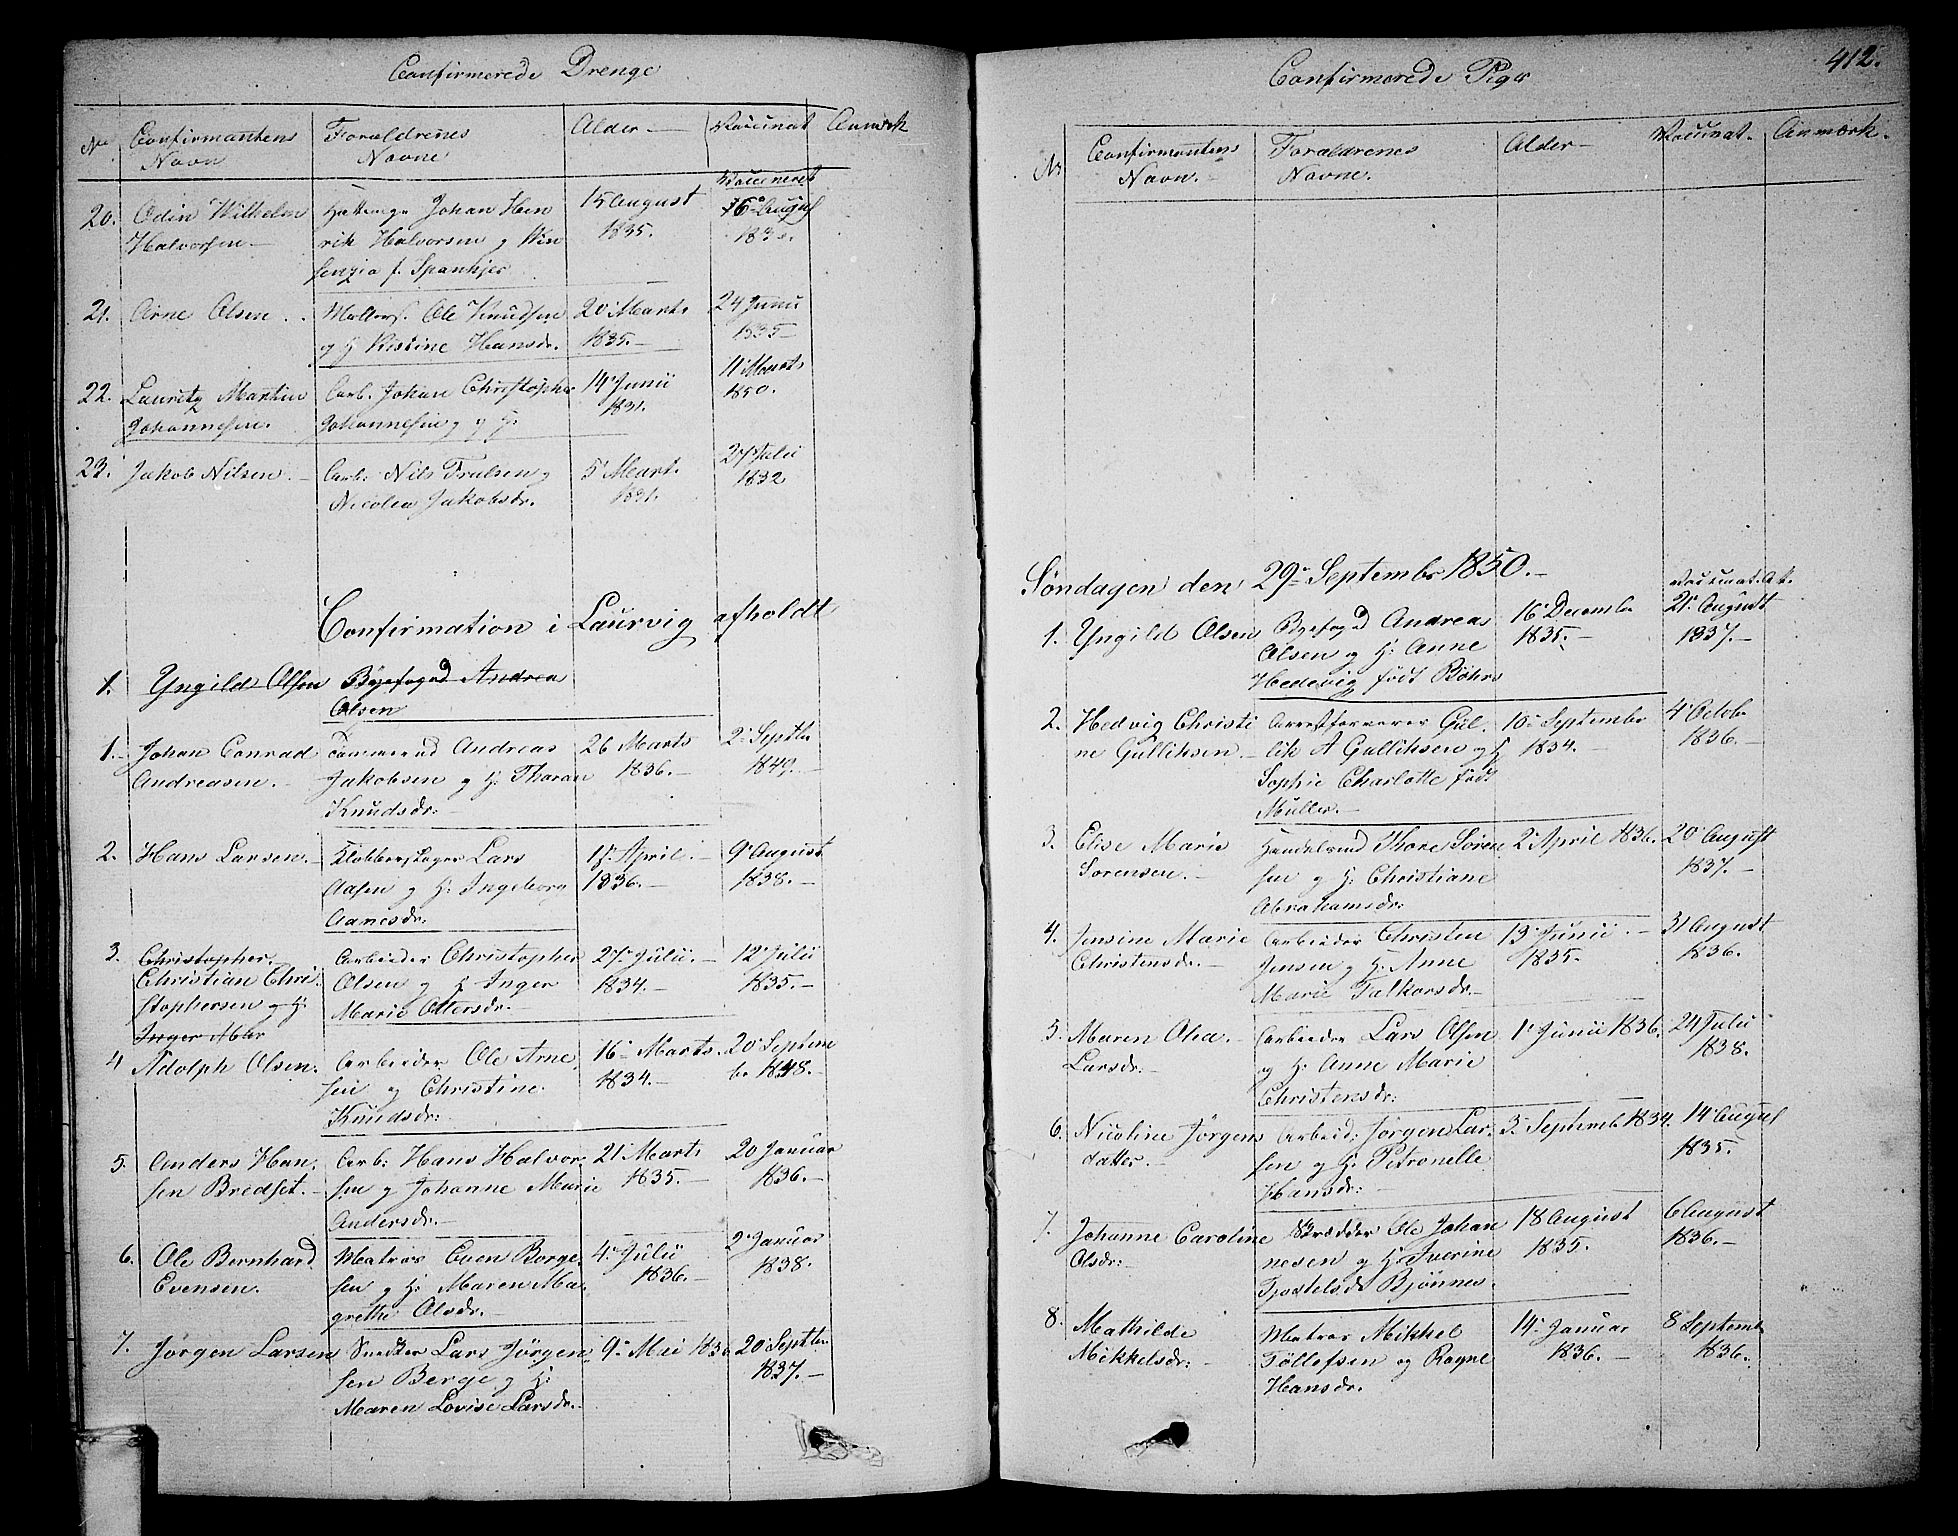 Confirmerede Drenge
No Confirmantens Navn
Forældrenes Navne
Alder
Vaccinat
Anmerk
20. Odin Wilhelm Halvorsen
Johan Hen
rik Halvorsen og
f. Spanhjer
15 August
1835.
Vaccineret
August
21. Arne Olsen
Ole Knudsen
og H. Kistine Hansdr.
20 Marts
1835.
24 Junii
1835
22. Lauritz Martin
Johannesen.
Arb. Johan Christopher
Johannesen og H:
14 Junii
1831.
11 Marts
1850.
23. Jakob Nilsen.
Arb: Nils Trulsen og
Nicolea Jakobsdr.
5 Mart.
1831.
27 Julii
1832
Confirmation i Laurvig afholdt
1. Yngild Olsen Byefoged Andrea
Olsen
1. Johan Conrad
Andreasen.
Andreas
Jakobsen og H: Tharan
Knudsdr:
26 Marts
1836.
2 Septbr
1849.
2. Hans Larsen.
Klokkerstager Lars
Aasen og H: Ingeborg
Aanesdr:
18 April.
1836.
9 August
1838.
3. Christopher
Christian Chri
stophersen og H:
Inger Mar
Arbeider Christopher
Olsen og H Inger
Marie Ottersdr:
27 Julii.
1834.
12 Julii
1835.
4 Adolph Olsen.
Arbeider Ole Arne
sen og Christine
Knudsdr:
16 Marts.
1834.
20 Septem
br 1838.
5. Anders Han
sen Bredset.
Arb: Hans Halvor
sen og Johanne Marie
Andersdr.
21 Marts
1835.
20 Januar
1836.
6. Ole Bernhard
Evensen.
Matros Even Borge
sen og H: Maren Ma
grethe Olsdr.
4 Julii
1836.
2 Januar
1838.
7. Jørgen Larsen
Snedker Lars Jørgen
sen Berge og H:
Maren Lovise Larsdr.
9 Mai
20 Septbr
1837.
Confirmerede Piger
412.
Nr
Confirmantens
Navn.
Forældrenes
Navne.
Alder
Vaccinat.
Anmærk.
Søndagen den 29 Septembr 1850.
Vaccinat. At.
1. Yngild Olsen
Byefoged Andreas
Olsen og H: Anne
Hedevig født Bøhrs
16 Decembr
1835.
21 August
1837.
2. Hedvig Christi
ne Gulliksen.
Arrestforvarer Gül.
lik A Gulliksen og H
Sophie Charlotte født
Müller.
10 Septembr
1834.
4 Octobr
1836.
3. Elise Marie
Sørensen.
Handelsmd Thore Søren
sen og H: Christiane
Abrahamsdr:
2 April 1836.
20 August
1837.
4. Jensine Marie
Christensdr.
Arbeider Christen
Jensen og H. Anne
Marie Falkorsdr.
13 Junii.
1835.
31 August
1836.
5. Maren Olea.
Larsdr:
Arbeider Lars Olsen
og H: Anne Marie
Christensdr:
1 Junii 1836.
24 Julii
1838.
6. Nicoline Jørgens
datter.
Arbeid: Jørgen Lar.
sen og H: Petronelle
Hansdr:
3 Septemb. 1834.
14 August
1835.
7. Johanne Caroline
Olsdr:
Ole Johan
nesen og H: Iverine
Fjostelsd. Bjønnes.
18 August
1835.
6 August
1836.
8. Mathilde
Mikkelsdr:
Matros Mikkel
Tøllefsen og Ragne
Hansdr.
14 Januar
1836.
8 Septemb
1836.